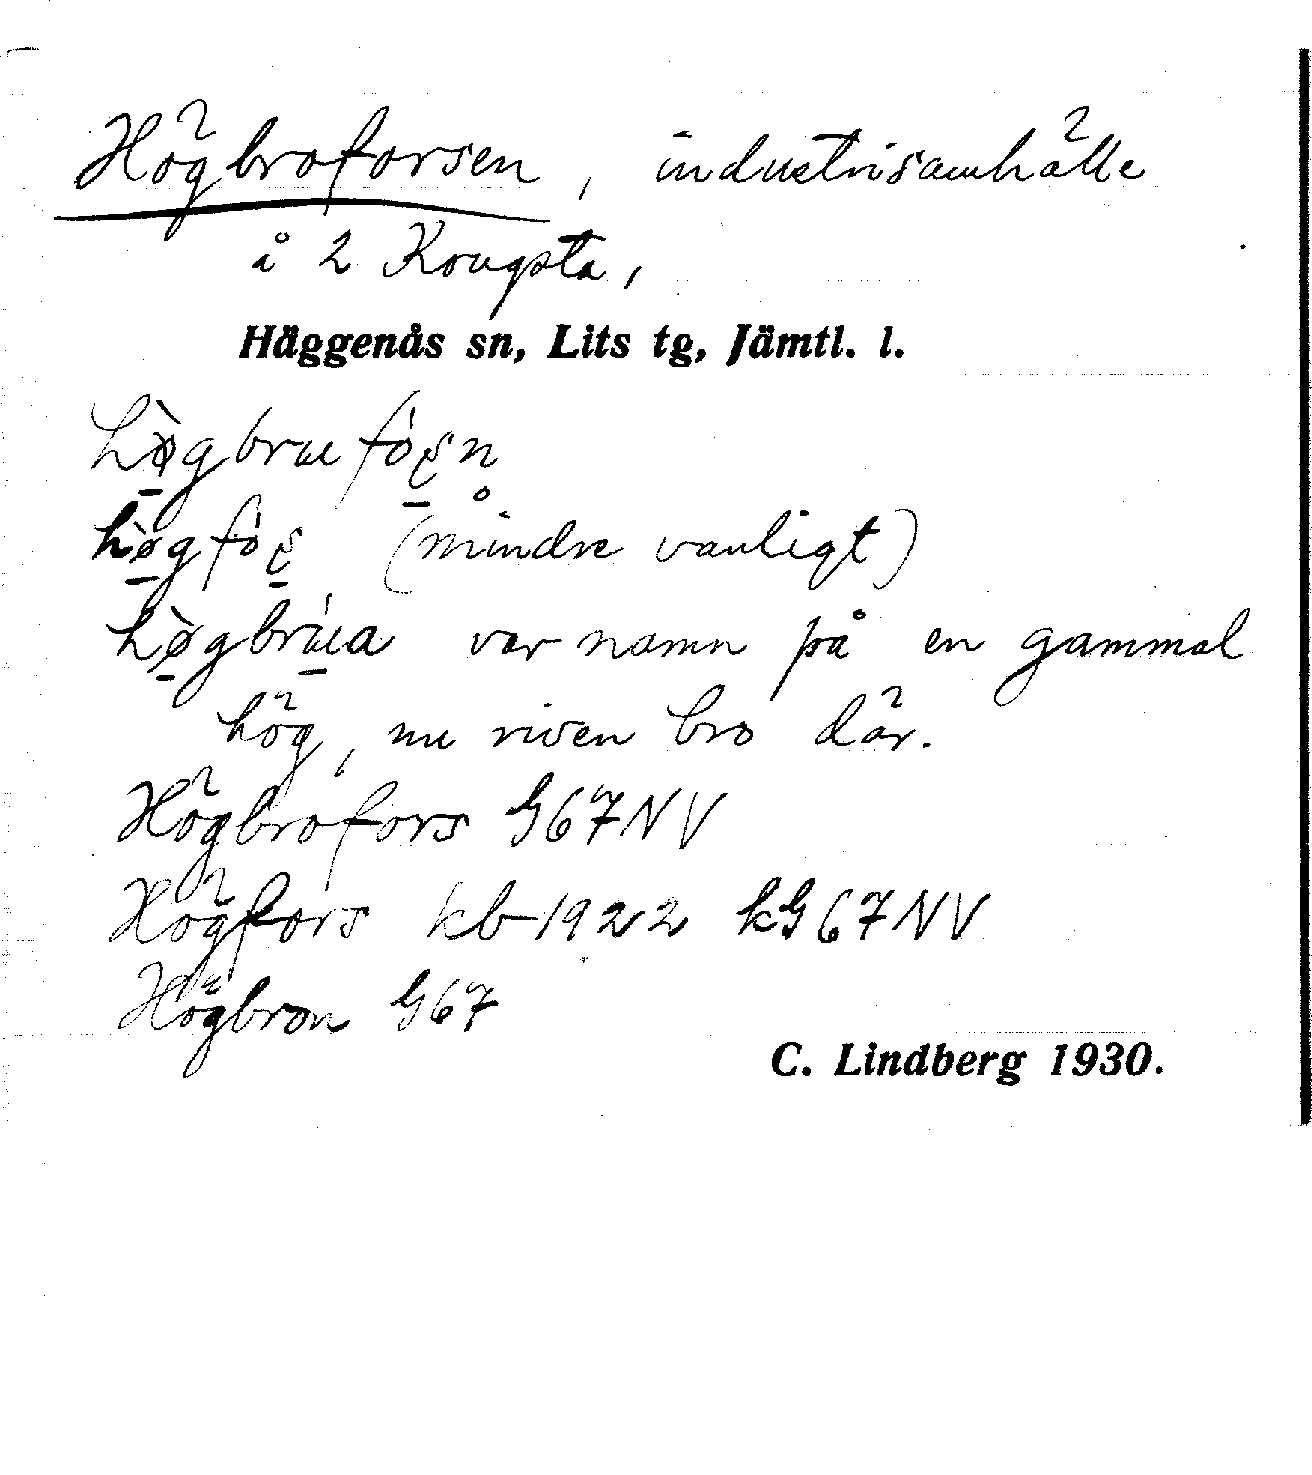 Högbroforsen, industrisamhälle
å 2 Kougsta,
Häggenås sn, Lits tg, Jämtl. l.
(mindre vanligt)
var namn på en gammal
hög, nu riven bro där.
Högbrofors G67NV
Högfors kb 1922 kG67NV
Högbron G67
C. Lindberg 1930.